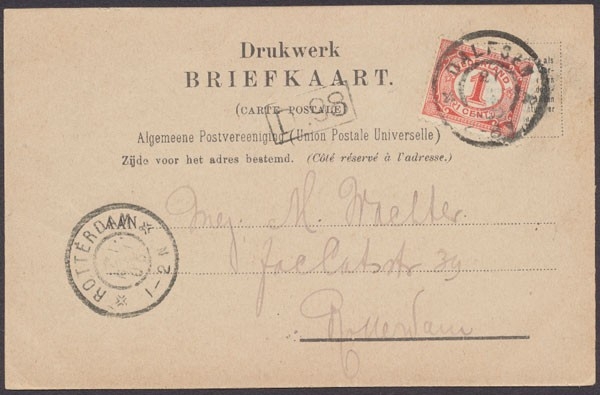 Drukwerk
BRIEFKAART.
(CARTE POSTALE)
L. 98
DALFSEN
NEDERLAND
1
CENT
Algemeene Postvereeniging (Union Postale Universelle)
Zijde voor het adres bestemd. (Côté réservé à l'adresse.)
AAN
ROTTERDAM
N
1-2
Mej. M. Waelter.
39
Rotterdam